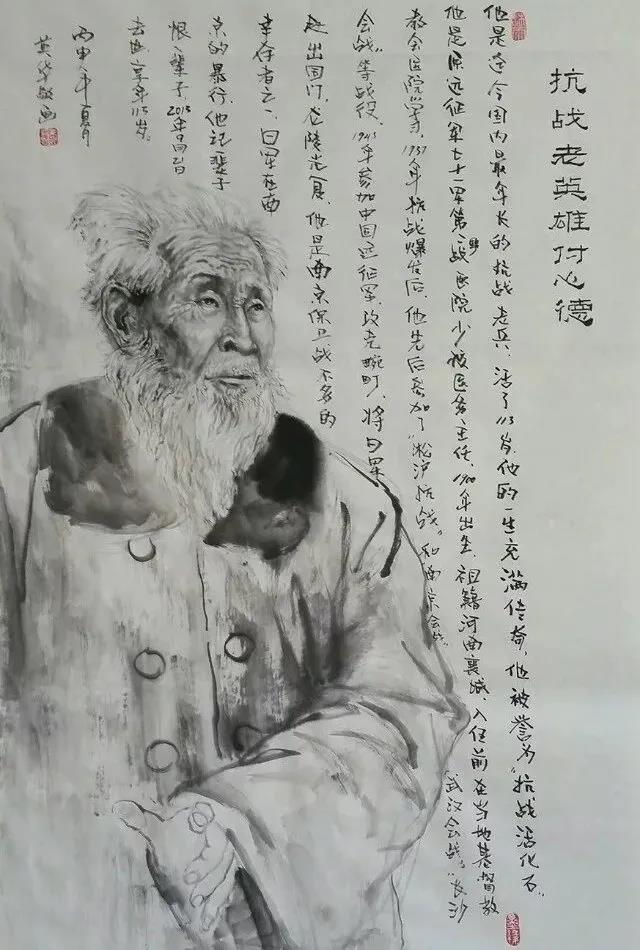 抗战老英雄付心德
他是迄今国内最年长的抗战老兵，活了115岁，他的一生充满传奇，他被誉为"抗战活化石"。
他是原远征军七十一军第二野战医院少校医务主任，出生，祖籍河南襄城，入伍前在当地基督教
教会医院学习，1937年抗战爆发后，他先后参加了"淞沪抗战。和南京会战。武汉会战。"长沙
会战"等战役，1943年参加中国远征军，攻克畹町，将日军
赶出国门，龙陵光复，他是南京保卫战不多的
幸存者之一，日军在南
京的暴行，他记一辈子
恨一辈子，2015年
去世享年115岁。
丙申年夏月
英华敬画